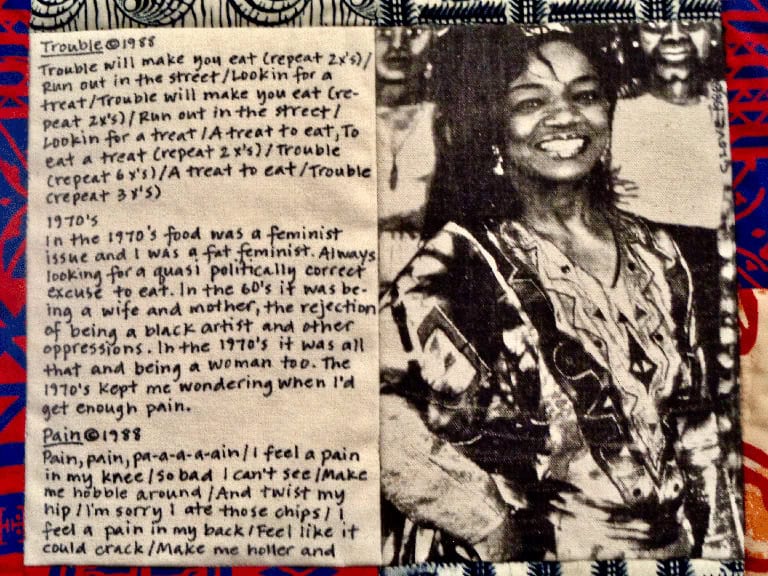 Trouble ©1988
Trouble will make you eat (repeat 2x's)/
Run out in the street/Lookin for a
treat/Trouble will make you eat (re-
peat 2x's)/Run out in the street/
Lookin for a treat/A treat to eat, To
eat a treat (repeat 2x's)/Trouble
(repeat 6x's)/A treat to eat/Trouble
(repeat 3x's)
1970's
In the 1970's food was a feminist
issue and I was a fat feminist. Always
looking for a quasi politically correct
excuse to eat. In the 60's it was be-
ing a wife and mother, the rejection
of being a black artist and other
oppressions. In the 1970's it was all
that and being a woman too. The
1970's kept me wondering when I'd
get enough pain.
Pain ©1988
Pain, pain, pa-a-a-a-ain/I feel a pain
in my knee/so bad I can't see/Make
me hobble around/And twist my
hip/I'm sorry I ate those chips/I
feel a pain in my back/Feel like it
could crack/Make me holler and